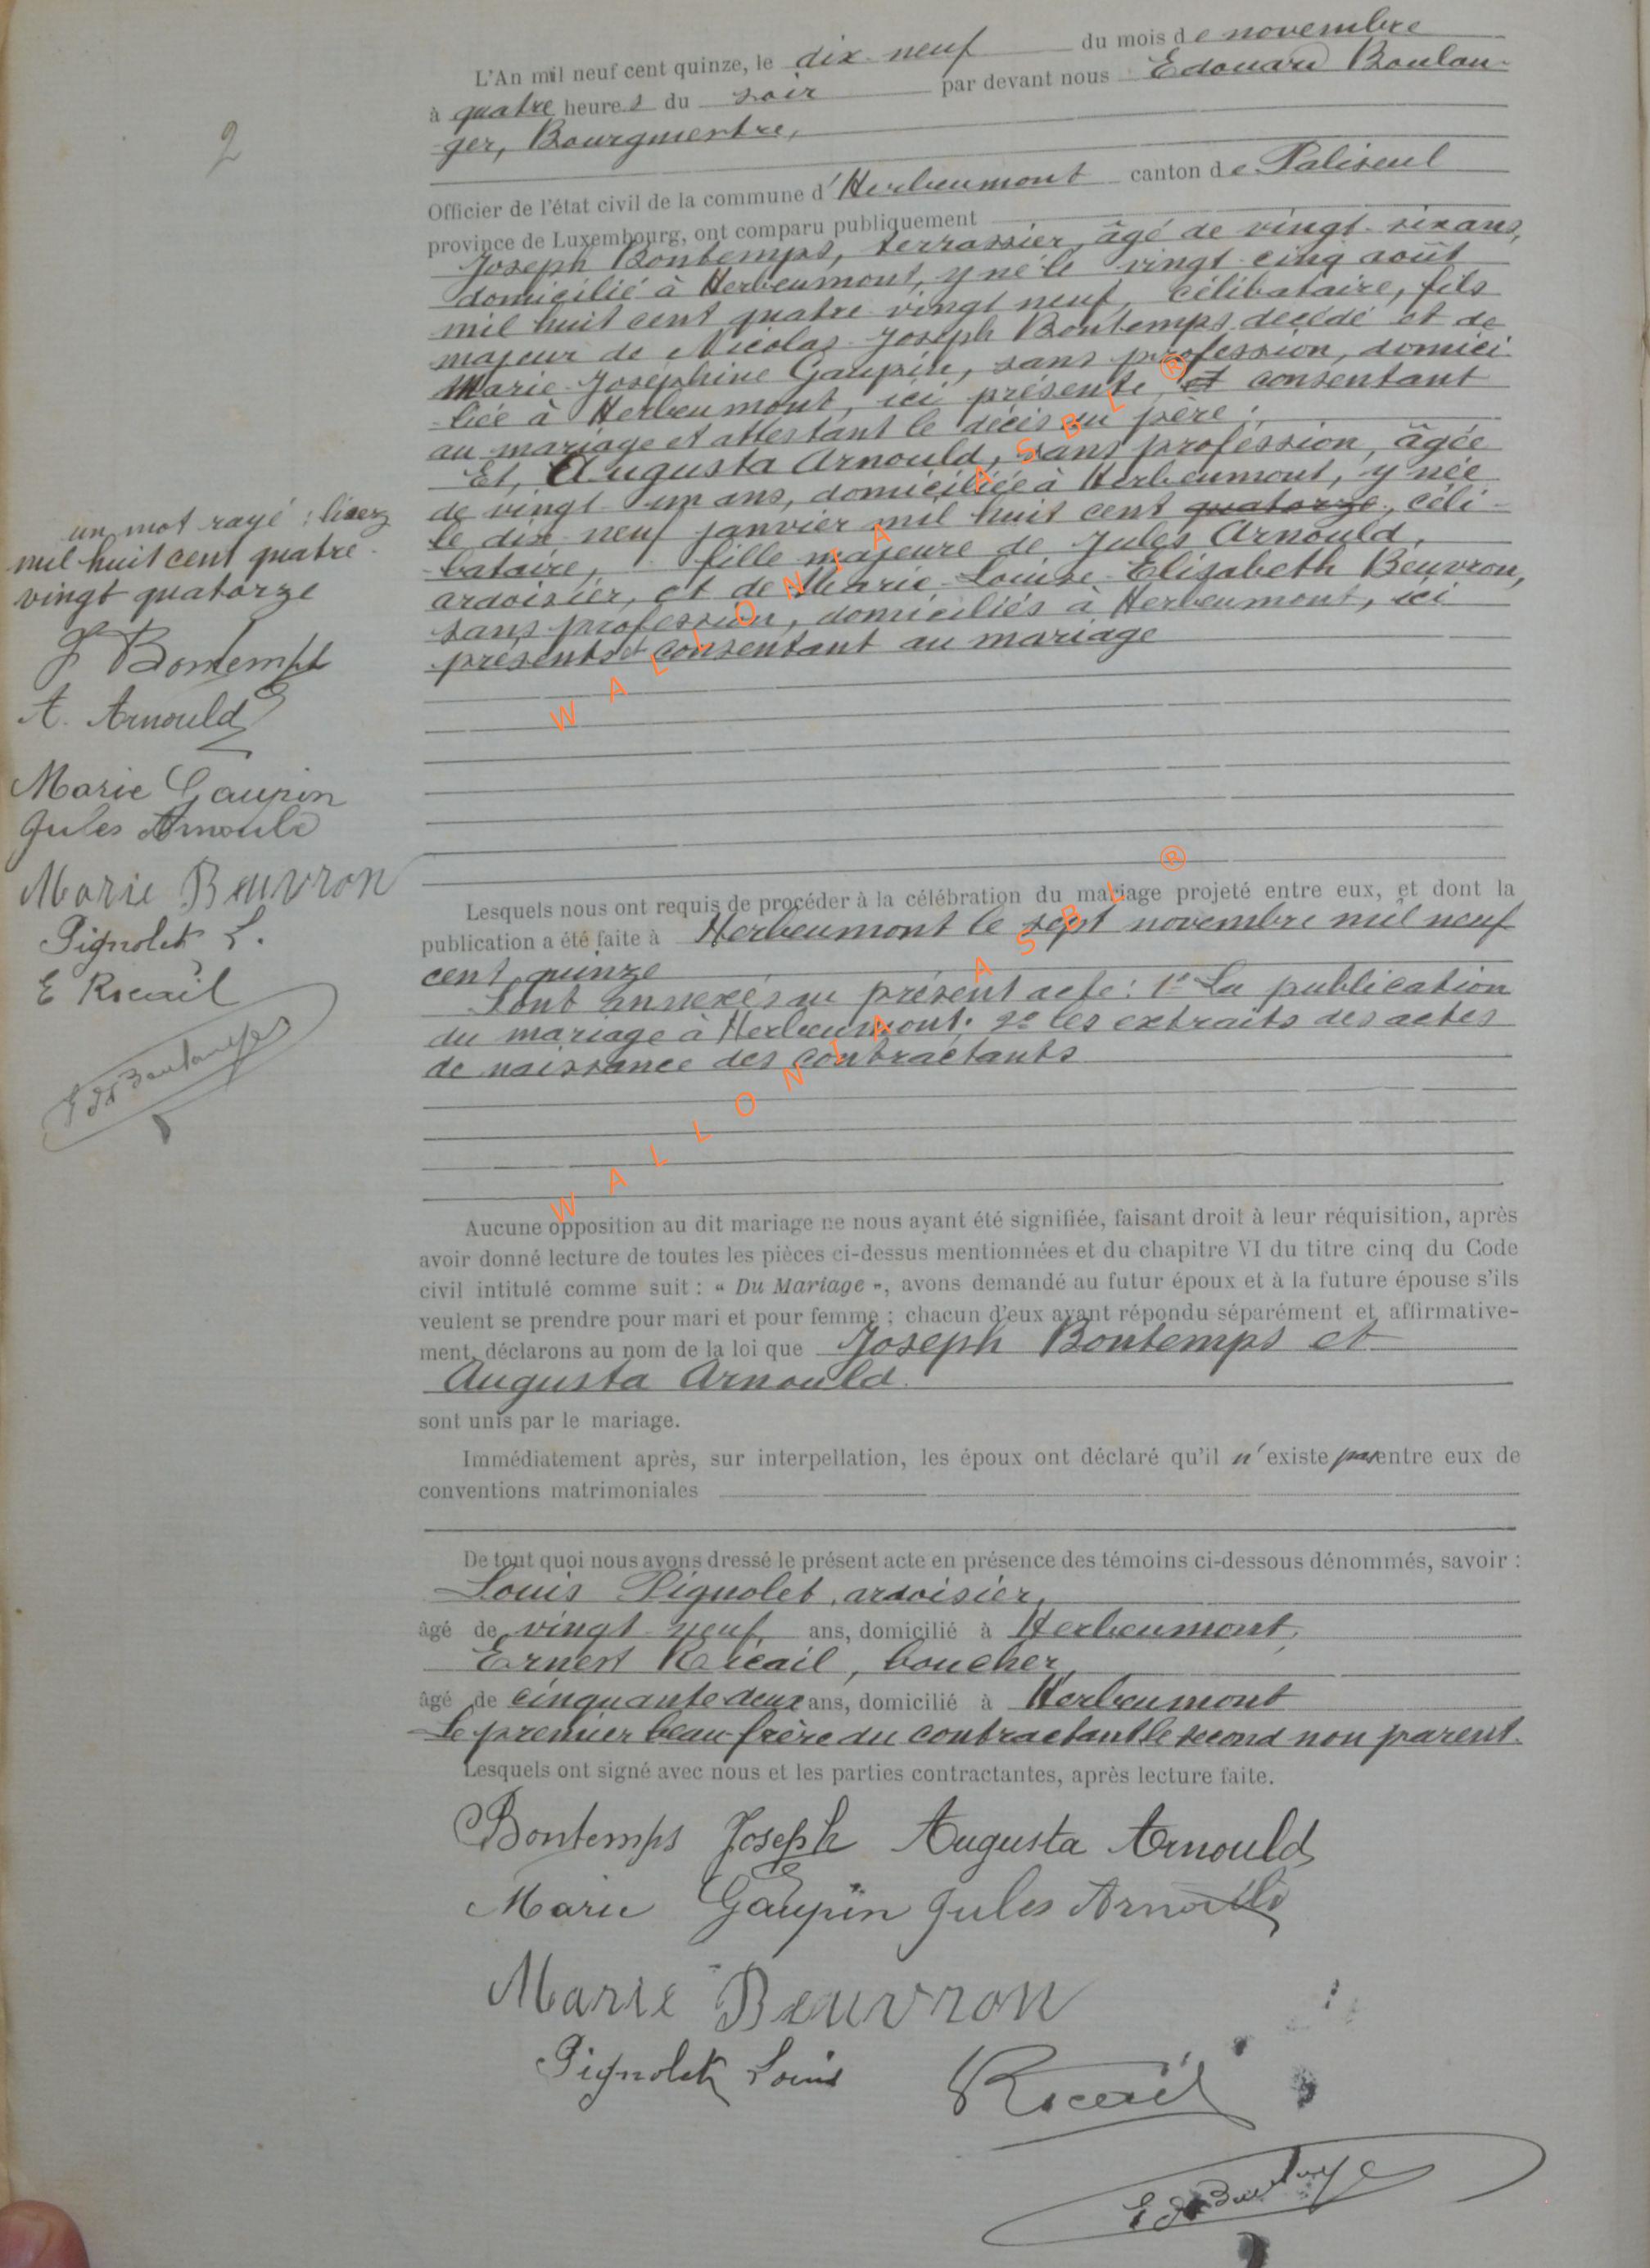 2
L'An mil neuf cent quinze, le dix-neuf du mois de novembre
à quatre heures du soir par devant nous Edouard Boulan-
ger, Bourgmestre,
Officier de l'état civil de la commune d'Herbeumont canton de Paliseul
province de Luxembourg, ont comparu publiquement
Joseph Bontemps, terrassier, âgé de vingt-six ans,
domicilié à Herbeumont, y né le vingt-cinq août
mil huit cent quatre-vingt neuf, célibataire, fils
majeur de Nicolas-Joseph Bontemps décédé et de
Marie-Joséphine Gaupin, sans profession, domici-
liée à Herbeumont, ici présente et consentant
au mariage et attestant le décès du père;
Et, Augusta Arnould, sans profession, âgée
de vingt-un ans, domiciliée à Herbeumont, y née
le dix-neuf janvier mil huit cent quatorze, céli-
bataire, fille majeure de Jules Arnould,
ardoisier, et de Marie-Louise-Elisabeth Beuvron,
sans profession, domiciliés à Herbeumont, ici
présents et consentant au mariage
un mot rayé : lisez
mil huit cent quatre-
vingt quatorze
J Bontemps
A. Arnould
Marie Gaupin
Jules Arnould
Marie Beuvron
Pignolet L.
E Ricail
Ed Boulanger
Lesquels nous ont requis de procéder à la célébration du mariage projeté entre eux, et dont la
publication a été faite à Herbeumont le sept novembre mil neuf
cent quinze
Sont annexés au présent acte: 1° La publication
du mariage à Herbeumont; 2° les extraits des actes
de naissance des contractants
Aucune opposition au dit mariage ne nous ayant été signifiée, faisant droit à leur réquisition, après
avoir donné lecture de toutes les pièces ci-dessus mentionnées et du chapitre VI du titre cinq du Code
civil intitulé comme suit : « Du Mariage », avons demandé au futur époux et à la future épouse s'ils
veulent se prendre pour mari et pour femme ; chacun d'eux ayant répondu séparément et affirmative-
ment, déclarons au nom de la loi que Joseph Bontemps et
Augusta Arnould
sont unis par le mariage.
Immédiatement après, sur interpellation, les époux ont déclaré qu'il n'existe pas entre eux de
conventions matrimoniales
De tout quoi nous avons dressé le présent acte en présence des témoins ci-dessous dénommés, savoir :
Louis Pignolet, ardoisier,
âgé de vingt-neuf ans, domicilié à Herbeumont,
Ernest Ricail, boucher,
âgé de cinquante deux ans, domicilié à Herbeumont
Le premier beau-frère du contractant le second non parent.
Lesquels ont signé avec nous et les parties contractantes, après lecture faite.
Bontemps Joseph Augusta Arnould
Marie Gaupin Jules Arnould
Marie Beuvron
Pignolet Louis Ricail
Ed Boulanger
WALLONIA ASBL ®
WALLONIA ASBL ®